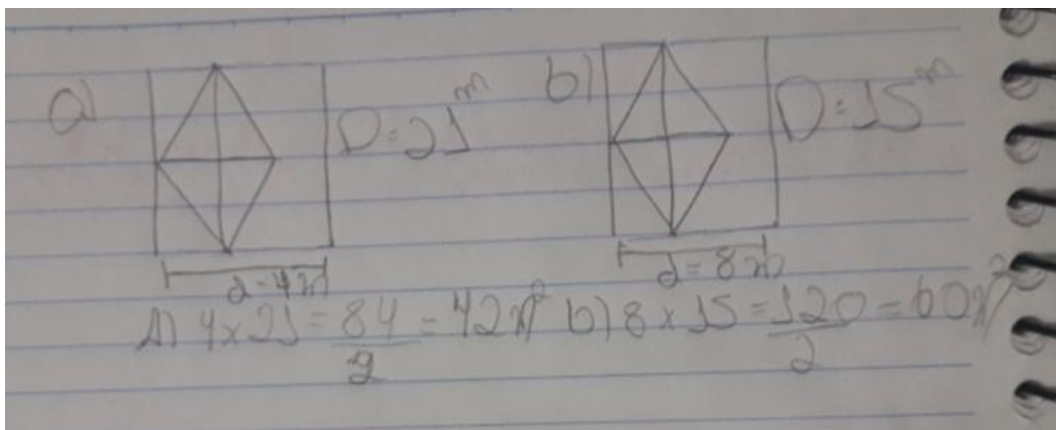 a) D=21m b) D=15m
d=4m d=8m
A) 4x21=84/2=42m² b) 8x15=120/2=60m²